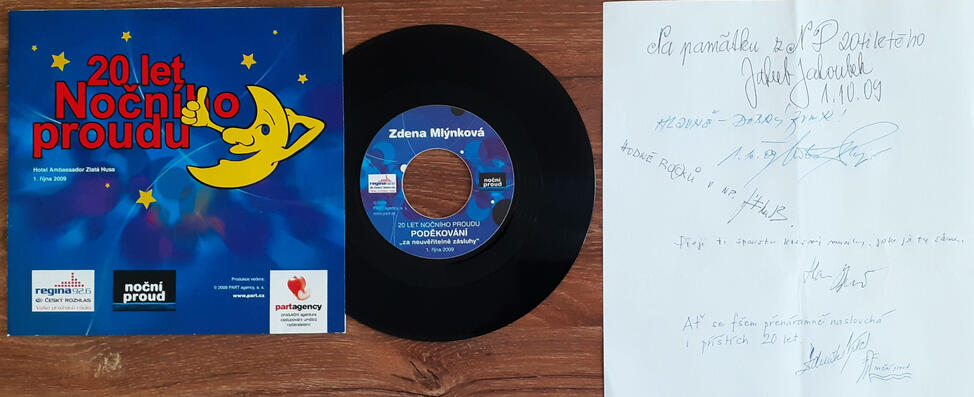 20 let
Nočního
proudu
Hotel Ambassador Zlatá Husa
1. října 2009
regina 92.6
ČESKÝ ROZHLAS
Vaše pražské rádio
noční
proud
Produkce večera:
© 2009 PART agency, s. s.
www.part.cz
partagency
produkční agentura
zastupování umělců
vydavatelství
Zdena Mlýnková
regina 92.6
ČESKÝ ROZHLAS
noční
proud
PART agency, s. s.
www.part.cz
20 LET NOČNÍHO PROUDU
PODĚKOVÁNÍ
„za neuvěřitelné zásluhy"
1. října 2009
Na památku z NP 20tiletého
Jakub
1.10.09
HLAVNĚ - DOBRÝ
1.10.09
HODNĚ ROCKŮ
V NP.
Přeji ti spoustu krásné muziky, jako já ty sama.
Ať se fšem přenáramně naslouchá
i příštích 20 let.
noční proud